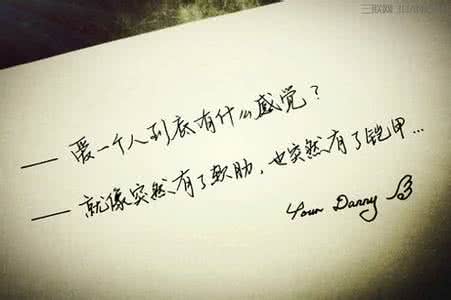 三联网 3LIAN.C
— 爱一个人到底有什么感觉？
— 就像突然有了软肋，也突然有了铠甲...
Your Danny